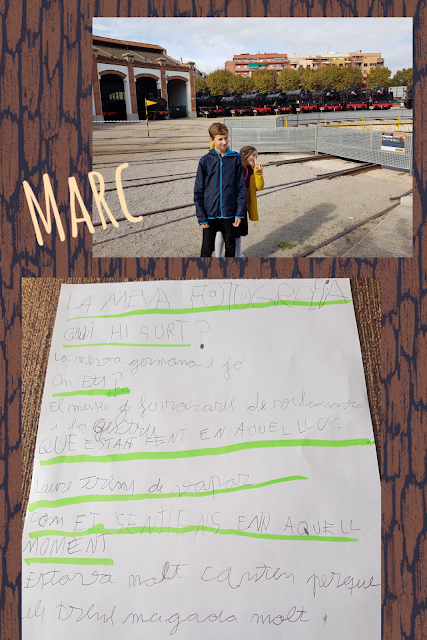 MARC
LA MEVA FOTOGRAFIA
QUI HI SURT?
La meva germana i jo
On ETS?
El museu de ferrocarril de vilanova
i la
QUE ESTAN FENT EN AQUELL LOC
veure trens de vapor
COM ET SENTIES ENN AQUELL
MOMENT
Estava molt canten perque
els trens magada molt.